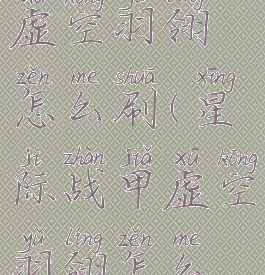 虚空羽翎
zěn me shuā xīng
怎么刷(星
jì zhàn jiǎ xū kōng
际战甲虚空
yǔ líng zěn me
羽翎怎么